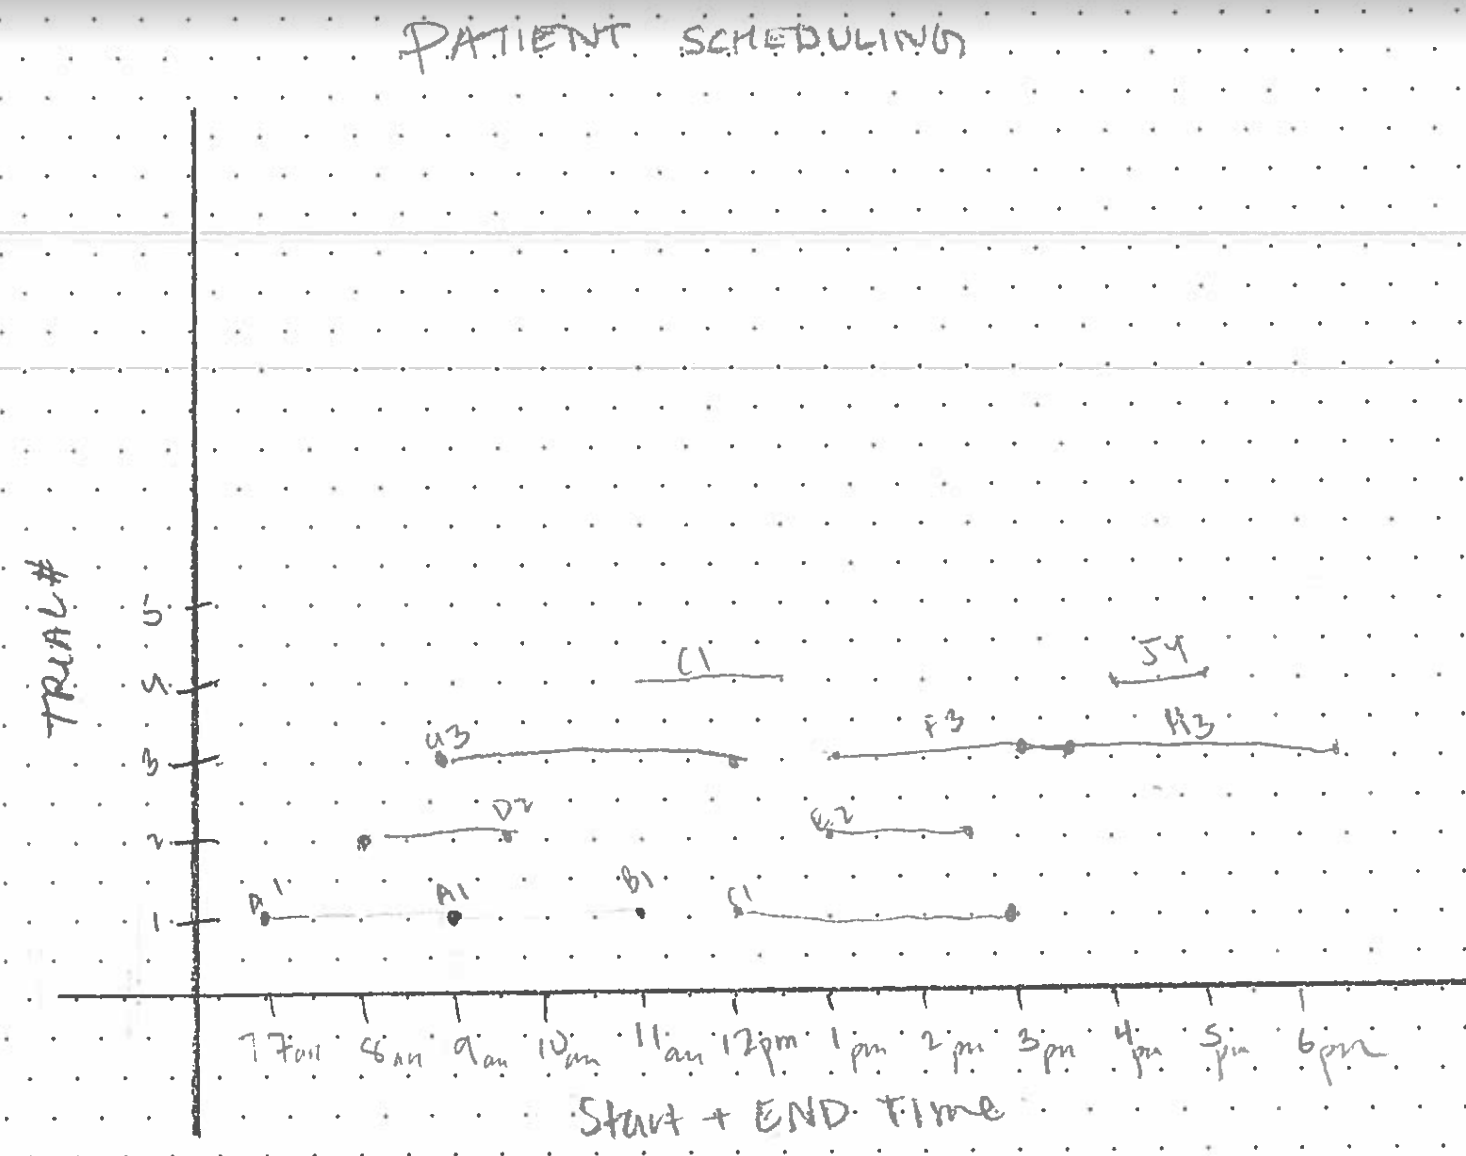 PATIENT SCHEDULING
TRIAL #
5
4
C1
J4
3
G3
F3
H3
2
D2
E2
1
A1
A1
B1
C1
7 7am 8am 9am 10am 11am 12pm 1pm 2pm 3pm 4pm 5pm 6pm
Start + END Time